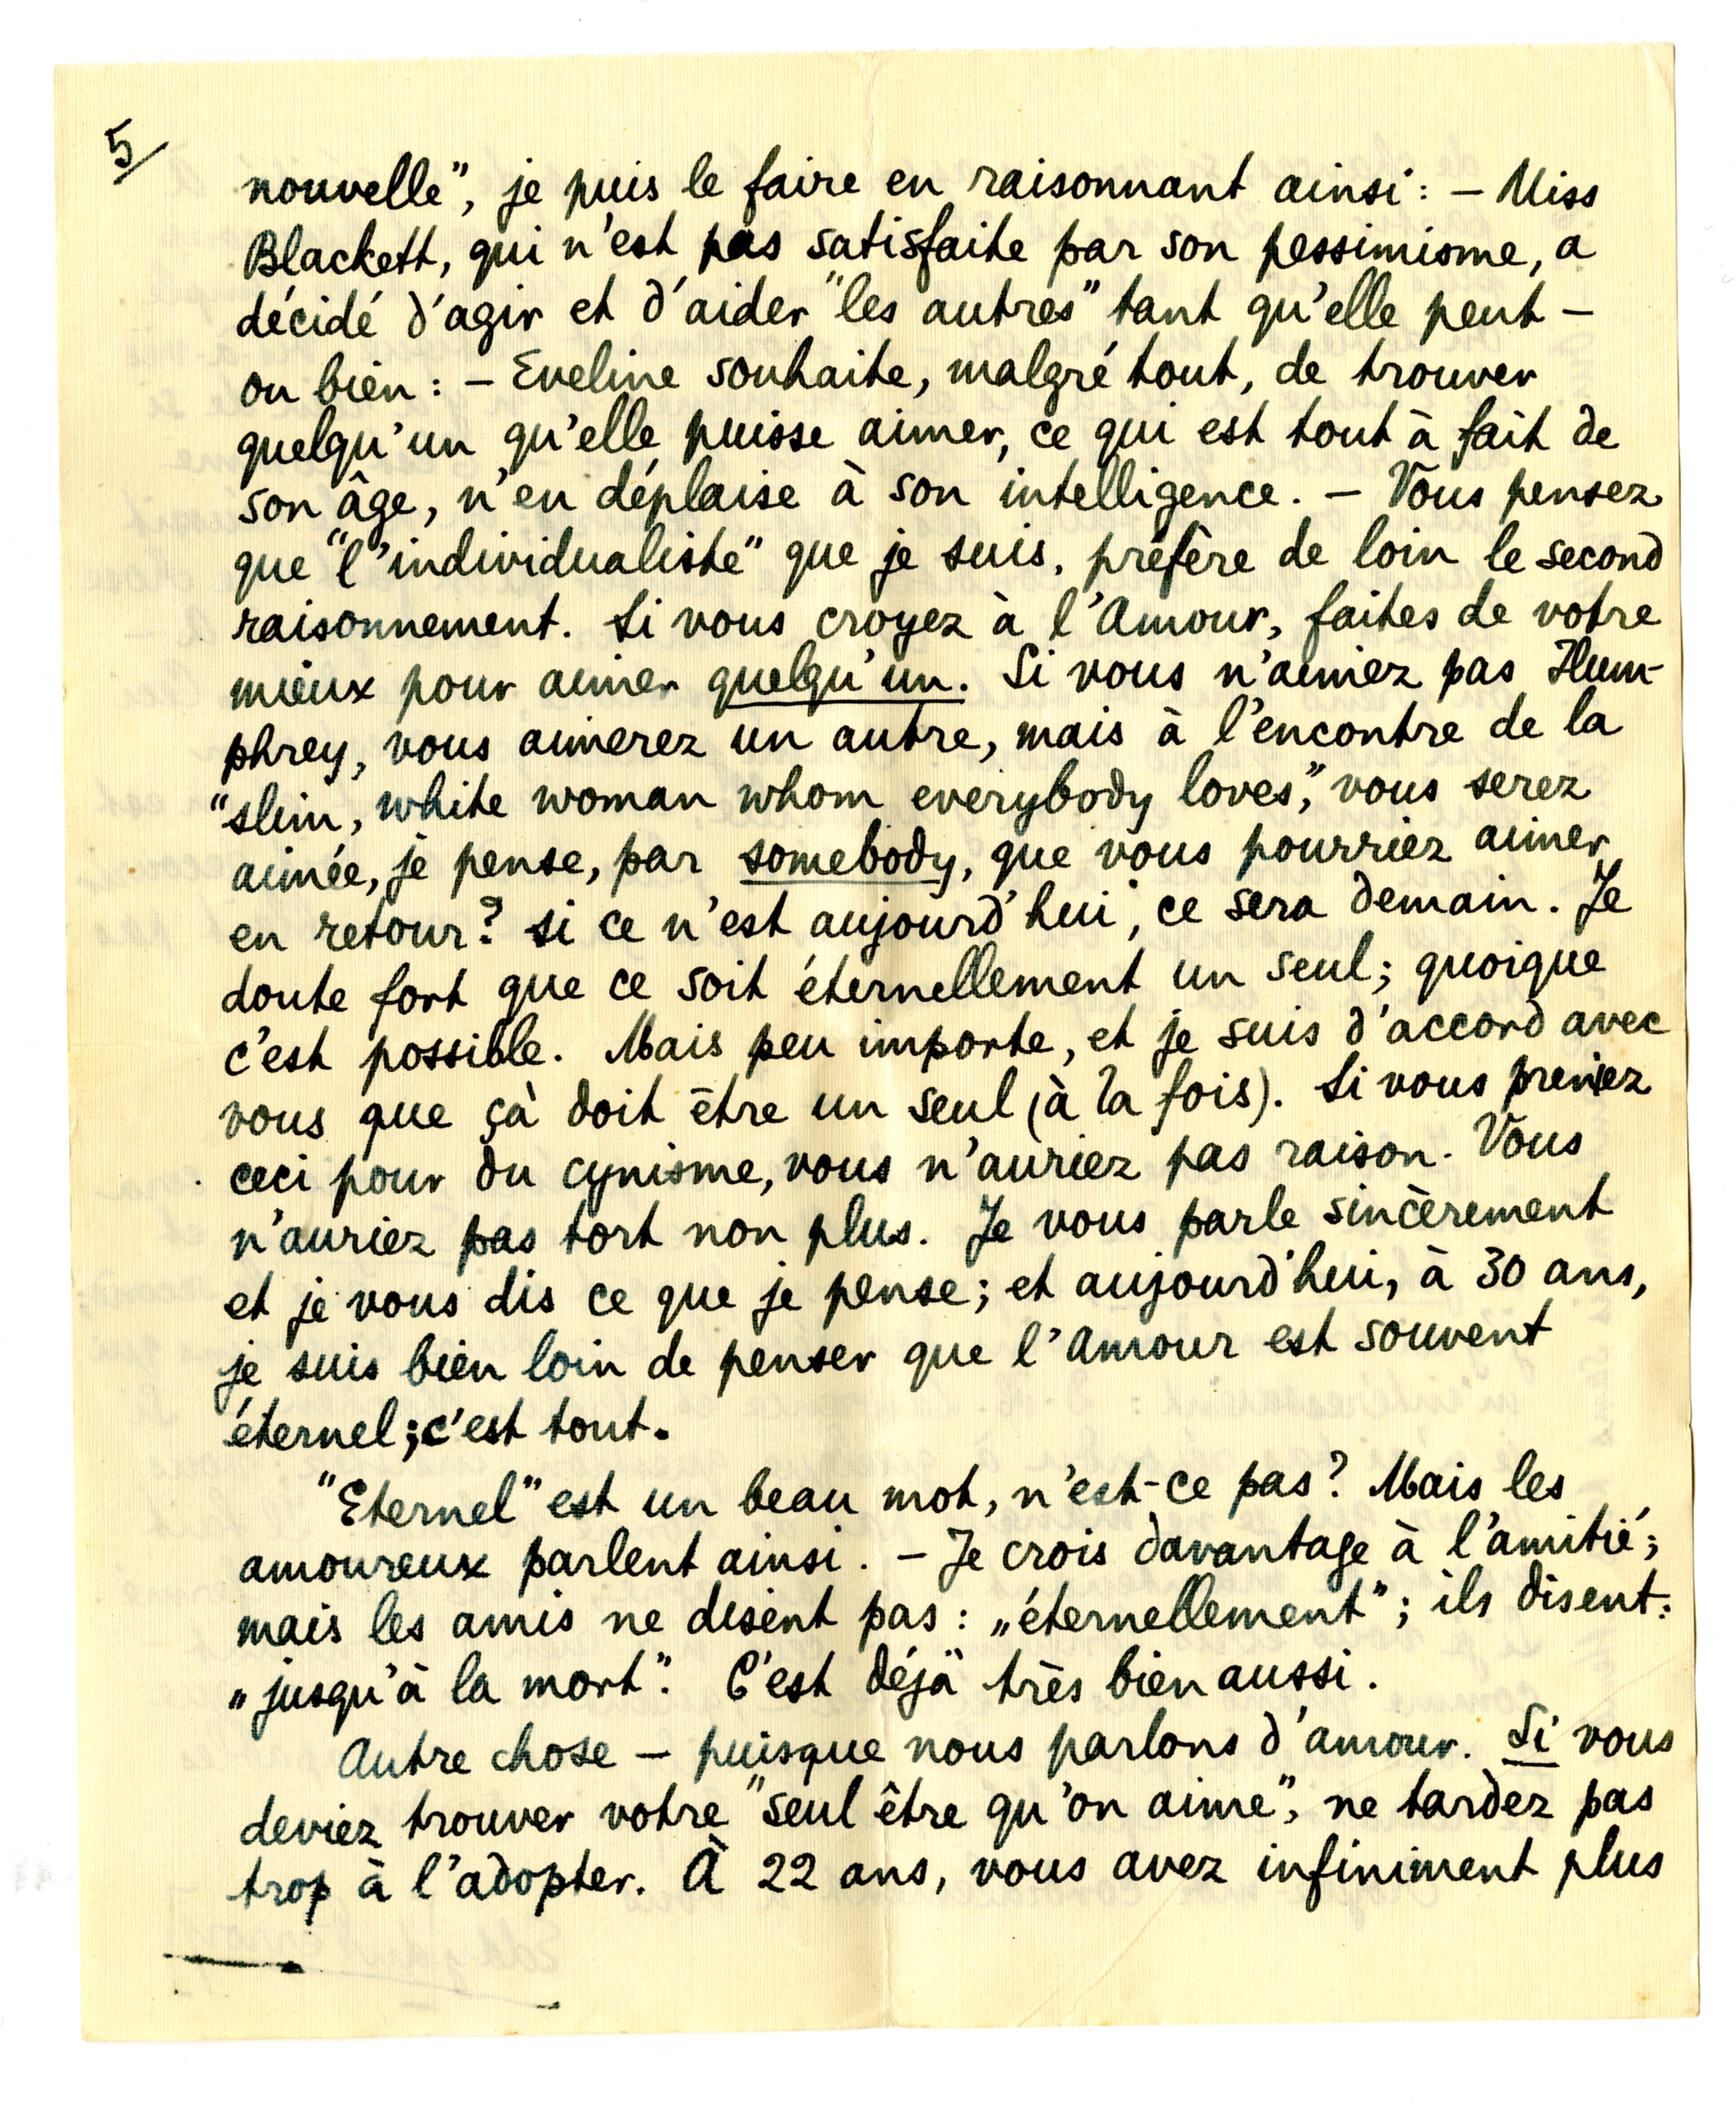 5
nouvelle", je puis le faire en raisonnant ainsi: – Miss
Blackett, qui n'est pas satisfaite par son pessimisme, a
décidé d'agir et d'aider "les autres" tant qu'elle peut –
ou bien: – Eveline souhaite, malgré tout, de trouver
quelqu'un qu'elle puisse aimer, ce qui est tout à fait de
son âge, n'en déplaise à son intelligence. – Vous pensez
que "l'individualiste" que je suis, préfère de loin le second
raisonnement. Si vous croyez à l'Amour, faites de votre
mieux pour aimer quelqu'un. Si vous n'aimez pas Hum-
phrey, vous aimerez un autre, mais à l'encontre de la
"slim, white woman whom everybody loves," vous serez
aimée, je pense, par somebody, que vous pourriez aimer
en retour? Si ce n'est aujourd'hui, ce sera demain. Je
doute fort que ce soit éternellement un seul; quoique
c'est possible. Mais peu importe, et je suis d'accord avec
vous que çà doit être un seul (à la fois). Si vous preniez
ceci pour du cynisme, vous n'auriez pas raison. Vous
n'auriez pas tort non plus. Je vous parle sincèrement
et je vous dis ce que je pense; et aujourd'hui, à 30 ans,
je suis bien loin de penser que l'Amour est souvent
éternel; c'est tout.
"Eternel" est un beau mot, n'est-ce pas? Mais les
amoureux parlent ainsi. – Je crois davantage à l'amitié;
mais les amis ne disent pas: „éternellement"; ils disent:
„jusqu'à la mort". C'est déjà très bien aussi.
Autre chose – puisque nous parlons d'amour. Si vous
deviez trouver votre "seul être qu'on aime", ne tardez pas
trop à l'adopter. À 22 ans, vous avez infiniment plus